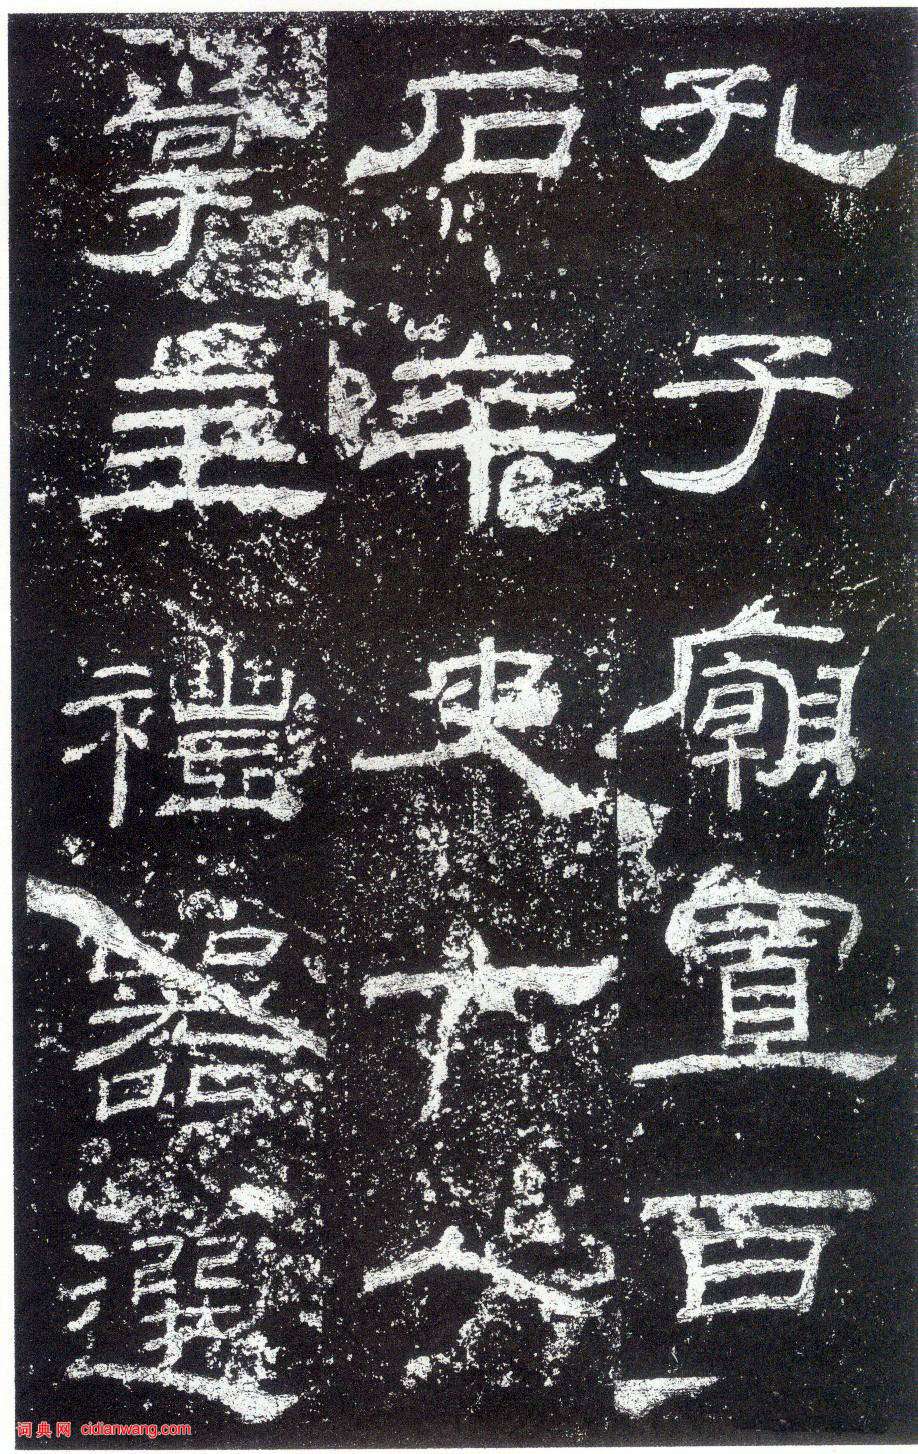 孔子廟置百
石卒史一人
掌主禮器選
词典网 cidianwang.com